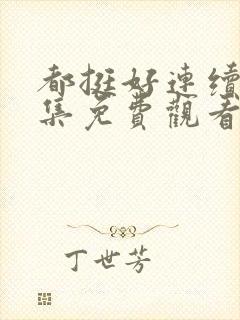 都挺好連續
集免費觀看
丁世芳